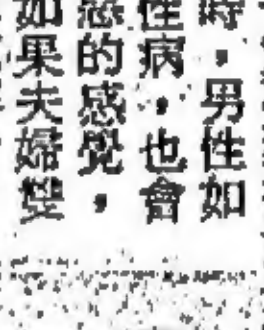 時，男性如
性病，也會
的感覺，
如果夫婦雙